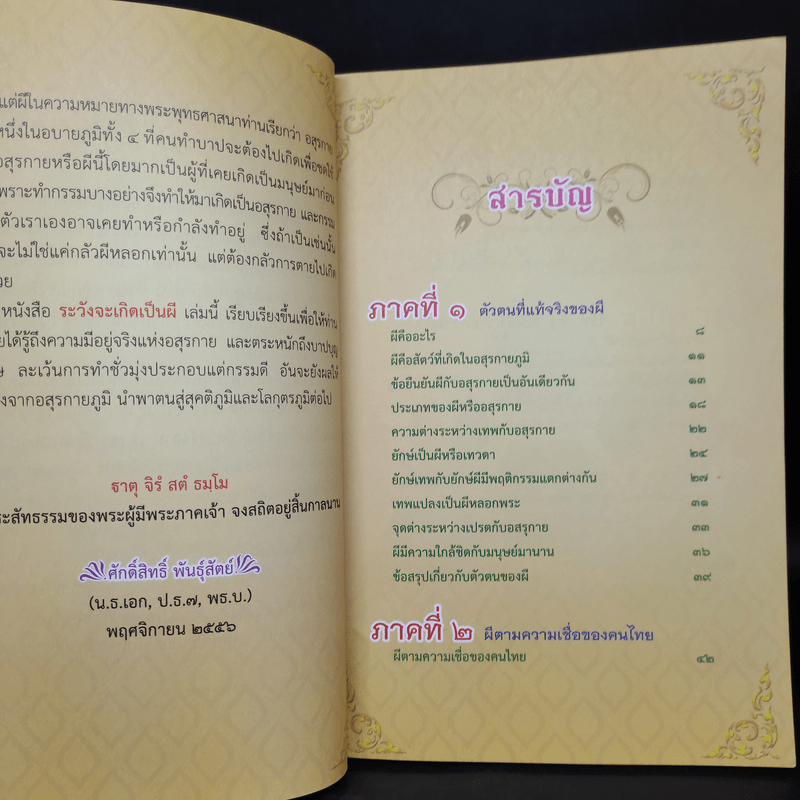 แต่ผีในความหมายทางพระพุทธศาสนาท่านเรียกว่า อสุรกาย
หนึ่งในอบายภูมิทั้ง ๔ ที่คนทำบาปจะต้องไปเกิดเพื่อชดใช้
อสุรกายหรือผีนี้โดยมากเป็นผู้ที่เคยเกิดเป็นมนุษย์มาก่อน
เพราะทำกรรมบางอย่างจึงทำให้มาเกิดเป็นอสุรกาย และกรรม
ตัวเราเองอาจเคยทำหรือกำลังทำอยู่ ซึ่งถ้าเป็นเช่นนั้น
จะไม่ใช่แค่กลัวผีหลอกเท่านั้น แต่ต้องกลัวการตายไปเกิด
วย
หนังสือ ระวังจะเกิดเป็นผี เล่มนี้ เรียบเรียงขึ้นเพื่อให้ท่าน
ยได้รู้ถึงความมีอยู่จริงแห่งอสุรกาย และตระหนักถึงบาปบุญ
ษ ละเว้นการทำชั่วมุ่งประกอบแต่กรรมดี อันจะยังผลให้
งจากอสุรกายภูมิ นำพาตนสู่สุคติภูมิและโลกุตรภูมิต่อไป
ธาตุ จิรํ สตํ ธมฺโม
ะสัทธรรมของพระผู้มีพระภาคเจ้า จงสถิตอยู่สิ้นกาลนาน
ศักดิ์สิทธิ์ พันธุ์สัตย์
(น.ธ.เอก, ป.ธ.๗, พธ.บ.)
พฤศจิกายน ๒๕๕๖
สารบัญ
ภาคที่ ๑ ตัวตนที่แท้จริงของผี
ผีคืออะไร ๘
ผีคือสัตว์ที่เกิดในอสุรกายภูมิ ๑๑
ข้อยืนยันผีกับอสุรกายเป็นอันเดียวกัน ๑๓
ประเภทของผีหรืออสุรกาย ๑๘
ความต่างระหว่างเทพกับอสุรกาย ๒๒
ยักษ์เป็นผีหรือเทวดา ๒๔
ยักษ์เทพกับยักษ์ผีมีพฤติกรรมแตกต่างกัน ๒๗
เทพแปลงเป็นผีหลอกพระ ๓๑
จุดต่างระหว่างเปรตกับอสุรกาย ๓๓
ผีมีความใกล้ชิดกับมนุษย์มานาน ๓๖
ข้อสรุปเกี่ยวกับตัวตนของผี ๓๙
ภาคที่ ๒ ผีตามความเชื่อของคนไทย
ผีตามความเชื่อของคนไทย ๔๒